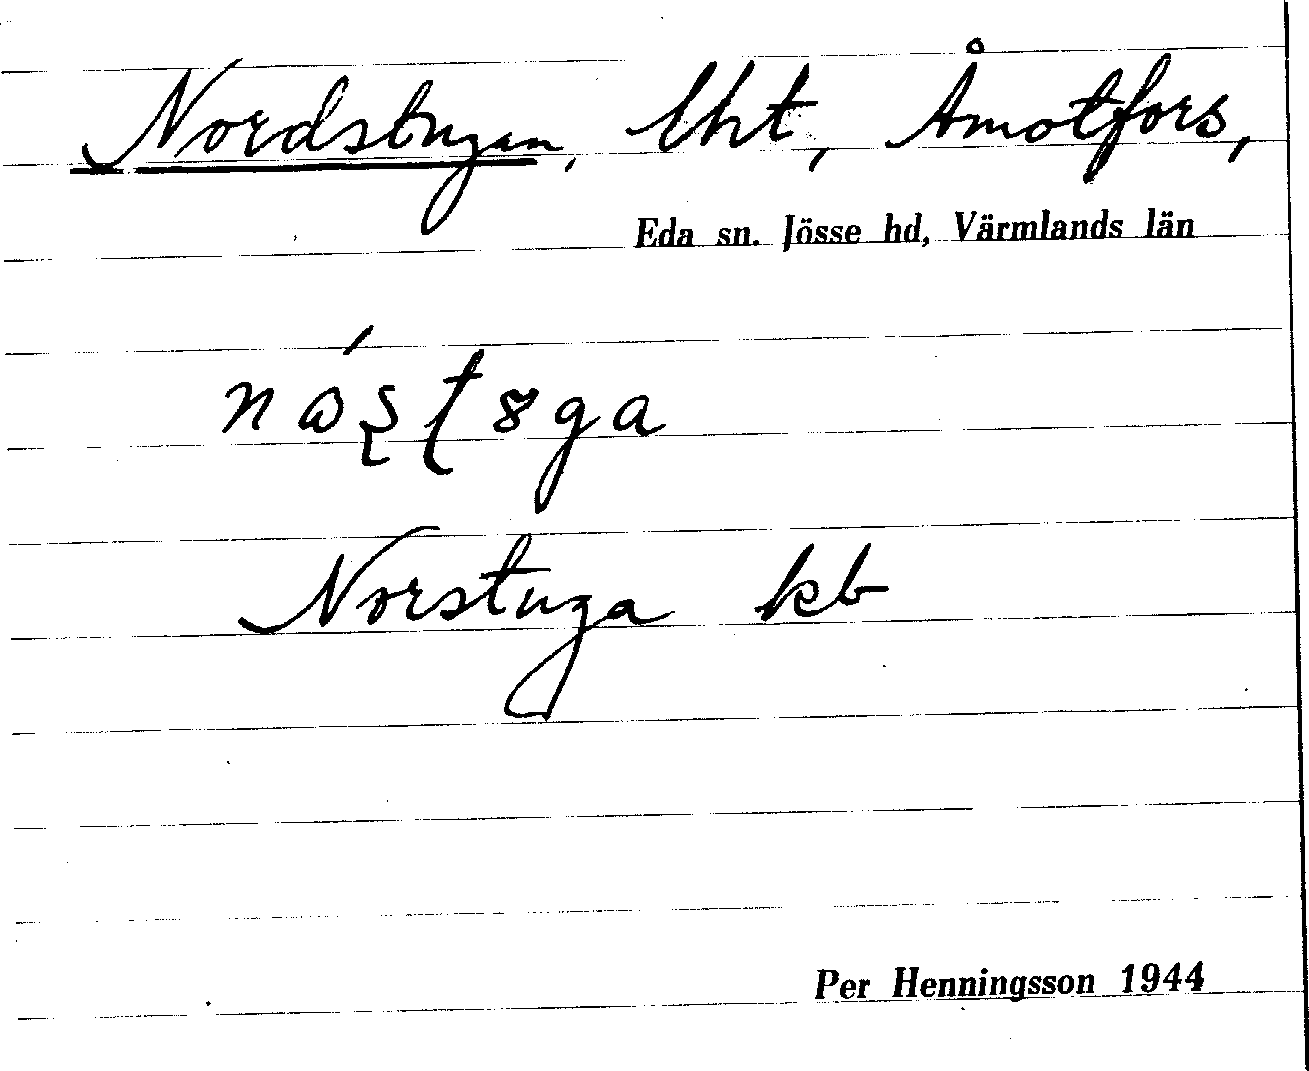 Nordstugan, lht, Åmotfors,
Eda sn. Jösse hd, Värmlands län
Norstuga kb
Per Henningsson 1944